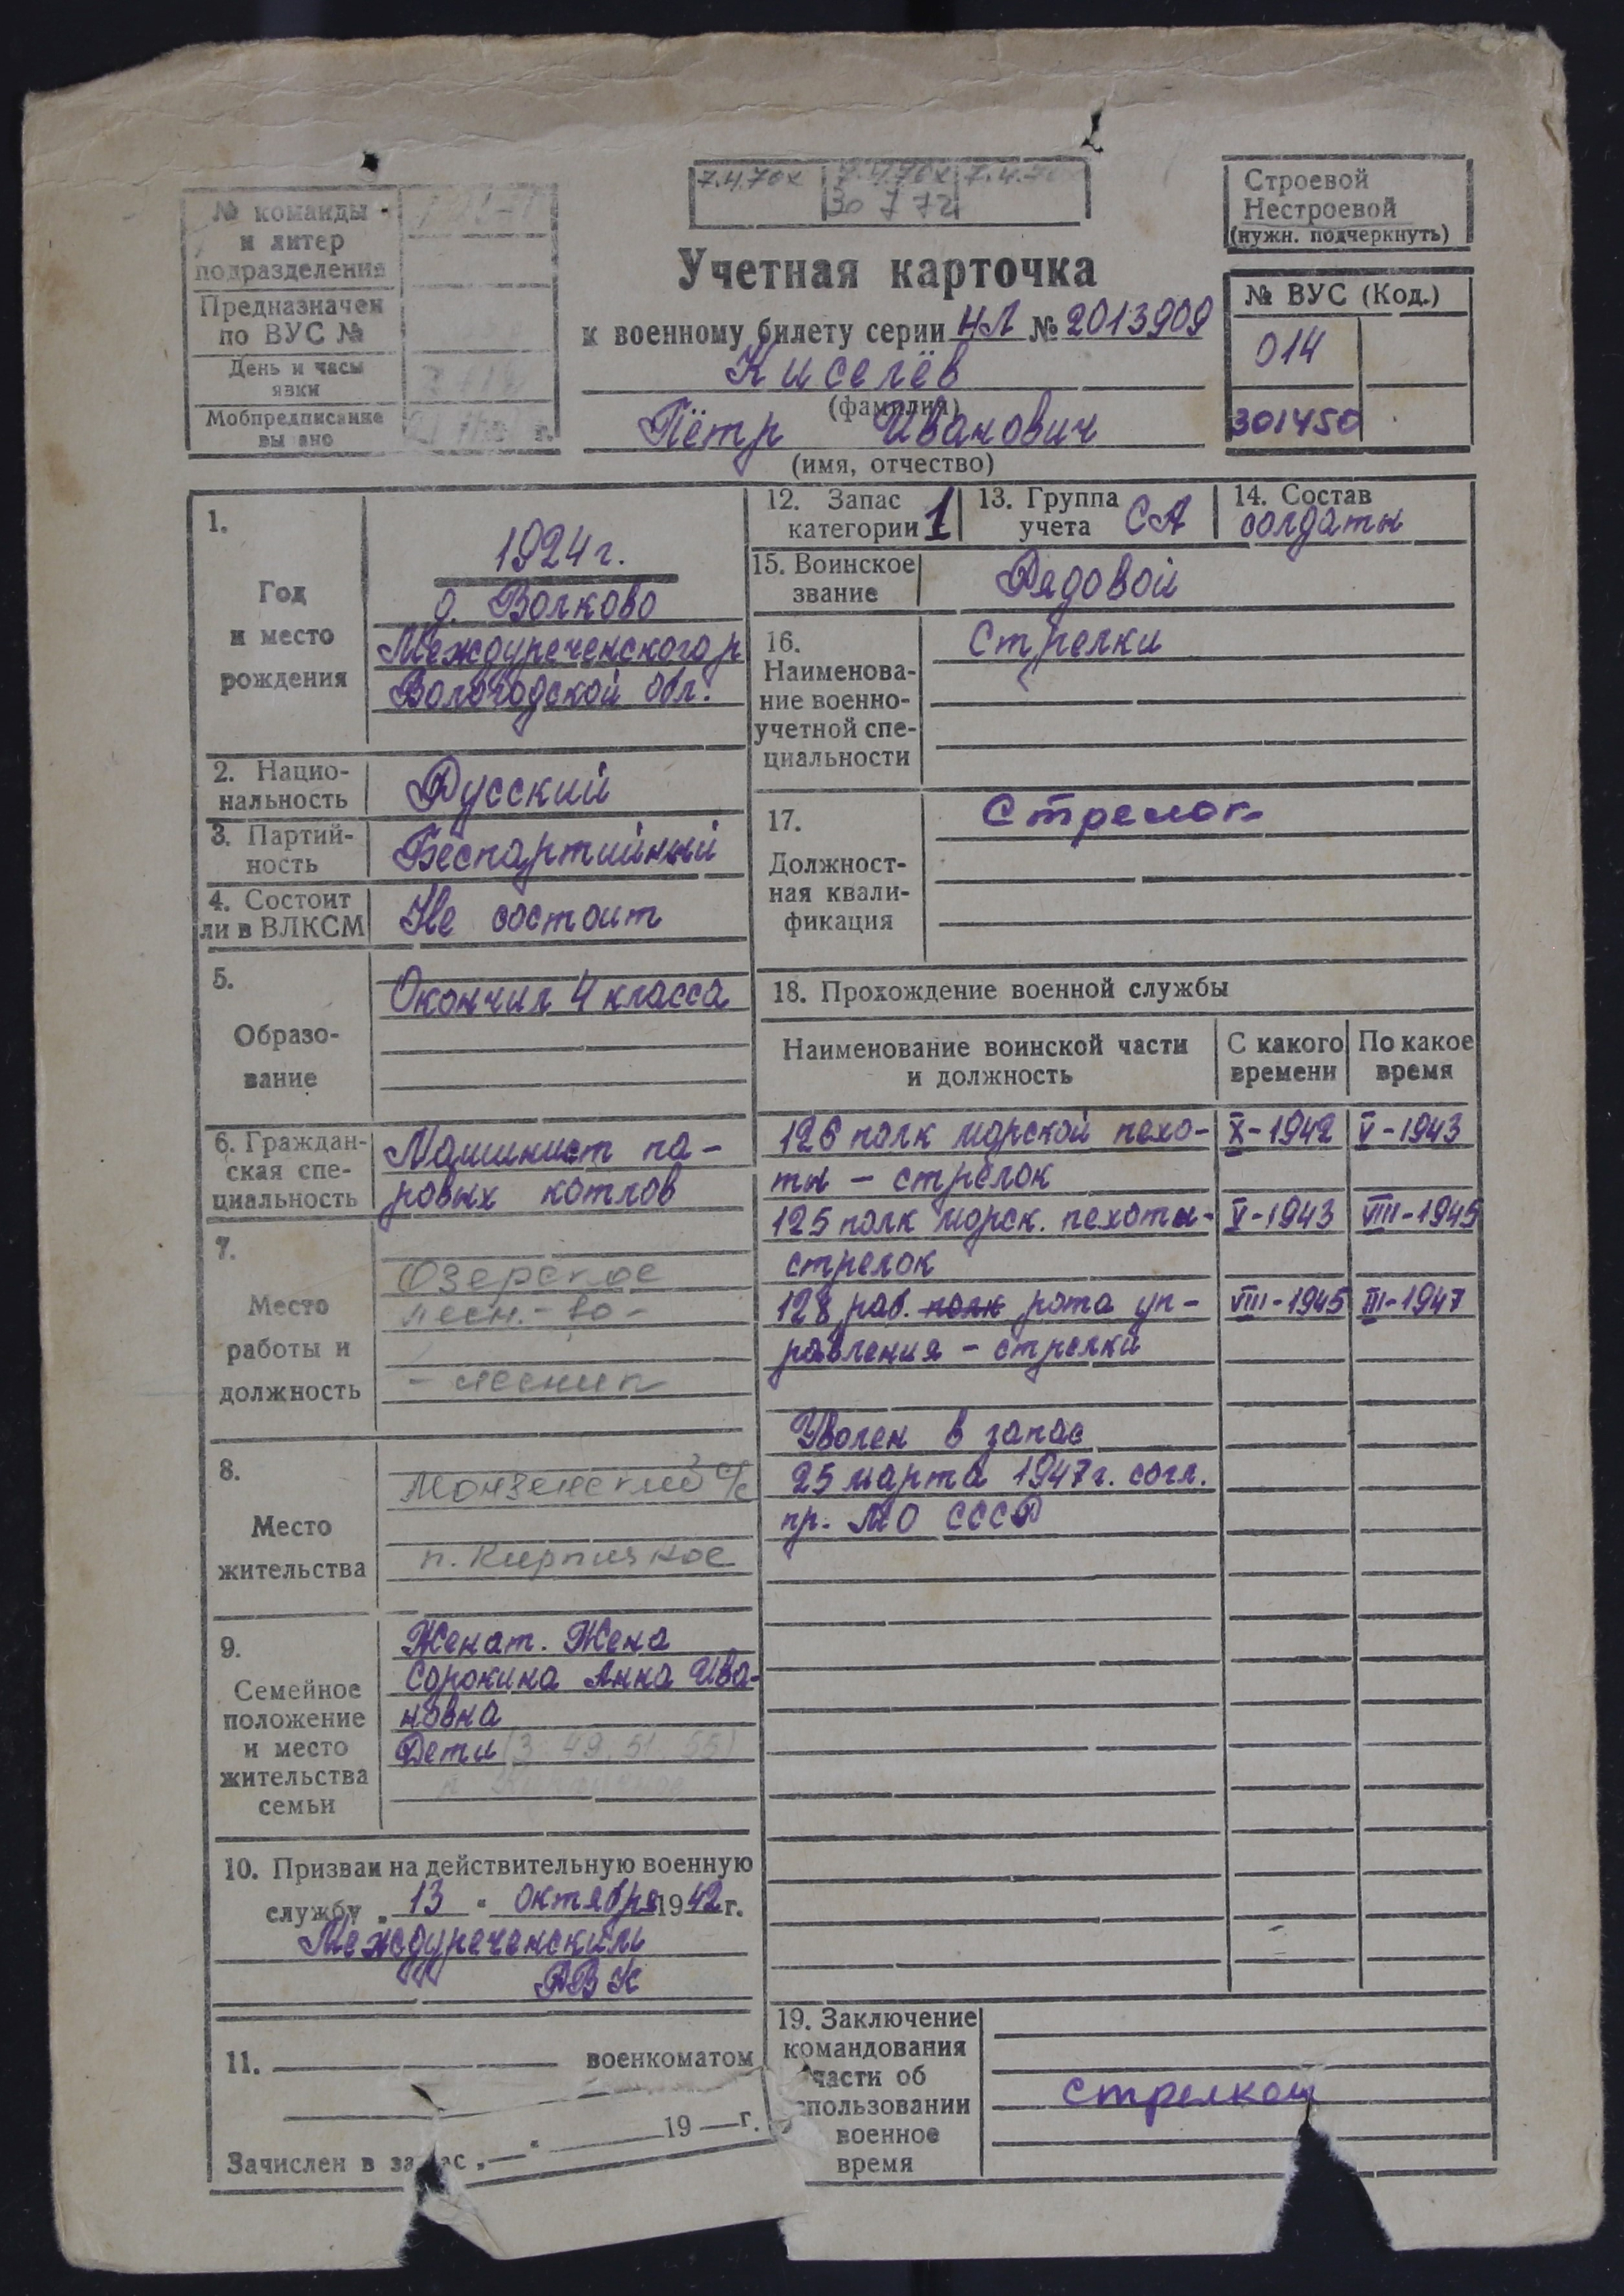 7.4.70х 7.4.70х 7.4.70
30 7 72
Строевой
Нестроевой
(нужн. подчеркнуть)
№ команды
и литер
подразделения
Предназначен
по ВУС №
День и часы
явки
Мобпредписание
вы ано
г.
Учетная карточка
к военному билету серии НЛ № 2013909
Киселёв
(фамилия)
Пётр Иванович
(имя, отчество)
№ ВУС (Код.)
014
301450
1.
Год
и место
рождения
1924 г.
д. Волково
Междуреченского р
Вологодской обл.
2. Нацио-
нальность
Русский
3. Партий-
ность
Беспартийный
4. Состоит
ли в ВЛКСМ
Не состоит
5.
Образо-
вание
Окончил 4 класса
6. Граждан-
ская спе-
циальность
Машинист па-
ровых котлов
7.
Место
работы и
должность
Озерское
лесн.-во-
- лесник
8.
Место
жительства
Монзенский с/с
п. Кирпичное
9.
Семейное
положение
и место
жительства
семьи
Женат. Жена
Сорокина Анна Ива-
новна
Дети (3 49, 51, 55)
10. Призван на действительную военную
службу „ 13 " октября 1942 г.
Междуреченским
РВК
11. военкоматом
19 — г.
Зачислен в за ас „ — "
12. Запас
категории 1
13. Группа
учета СА
14. Состав
солдаты
15. Воинское
звание
Рядовой
16.
Наименова-
ние военно-
учетной спе-
циальности
Стрелки
17.
Должност-
ная квали-
фикация
Стрелок
18. Прохождение военной службы
Наименование воинской части
и должность
С какого
времени
По какое
время
126 полк морской пехо- X-1942 V-1943
ты – стрелок
125 полк морск. пехоты- V-1943 VIII-1945
стрелок
128 раб. полк рота уп- VIII-1945 III-1947
равления – стрелки
Уволен в запас
25 марта 1947 г. согл.
пр. МО СССР
19. Заключение
командования
части об
спользовании
военное
время
стрелком